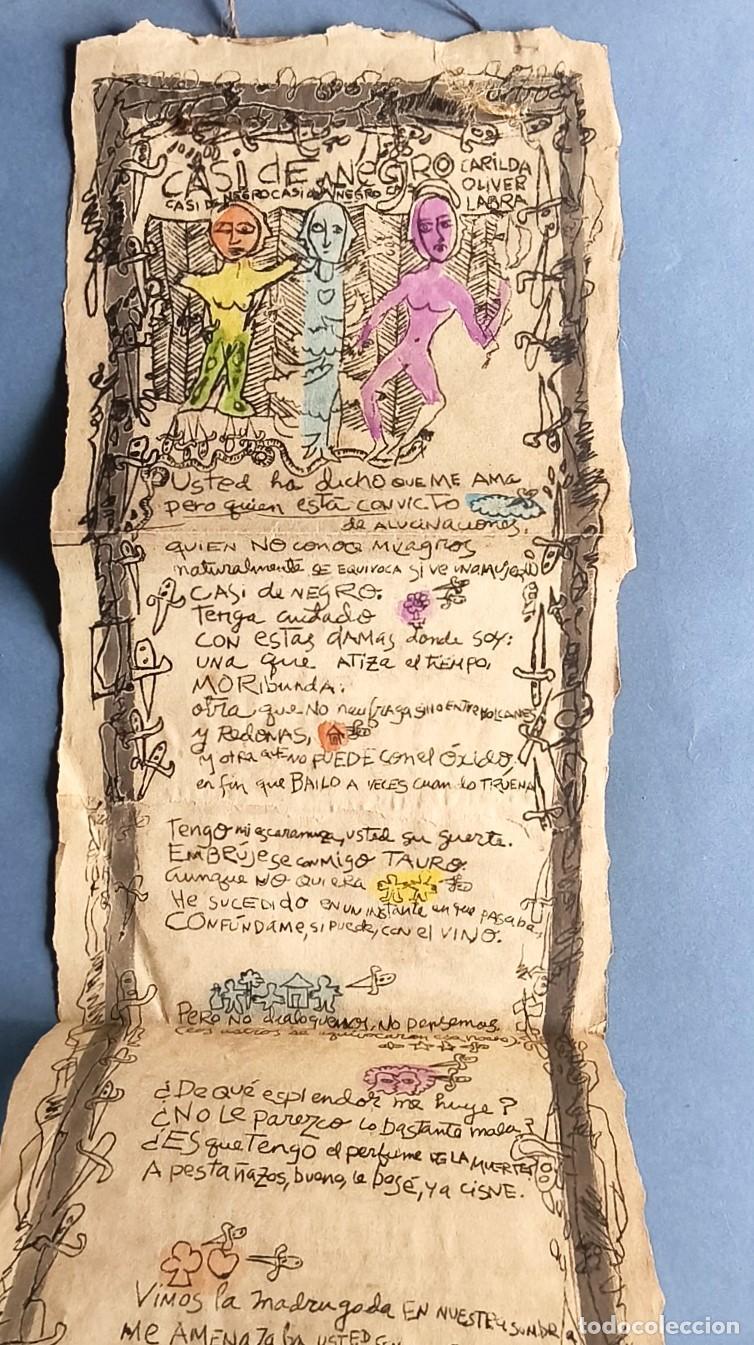 CASI DE NEGRO
CARILDA
OLIVER
LABRA
CASI DE NEGRO CASI DE NEGRO CA
Usted ha dicho QUE ME AMA
pero quien está CONVICTO
de ALUCINACIONES,
QUIEN NO conoce MILAGROS
naturalmente SE EQUIVOCA SI VE UNA MUJER
CASI de NEGRO.
Tenga cuidado
CON estas DAMAS donde SOY:
UNA que ATIZA el TIEMPO,
MORIBUNDA;
otra que NO naufraga SINO ENTRE VOLCANES
y REDOMAS,
y otra que NO PUEDE con el óxido,
en fin que BAILO A VECES cuando TRUENA
Tengo mi escaramuza, usted su suerte.
EMBRÚJESE conMIGO TAURO.
aunque NO QUIERA
HE SUCEDIDO EN UN instante en que PASABA,
CONFÚNDAME, SI PUEDE, CON el VINO.
PERO NO dialoguemos, NO pensemos
(los astros se equivocaron esa noche).
¿De QUÉ esplendor me huye?
¿NO LE PAREZCO lo bastante mala?
¿ES que TENGO el perfume DE LA MUERTE?
A pestañazos, bueno, le besé, ya CISNE.
VIMOS la madrugada EN NUESTRA SOMBRA
ME AMENAZABA USTED
todocoleccion